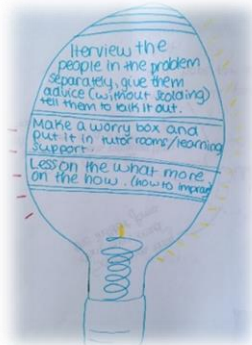 Iterview the
people in the problem
separately, give them
advice (without scolding)
tell them to talk it out.
Make a worry box and
put it in tutor rooms/learning
support.
Less on the what more
on the how. (how to improve